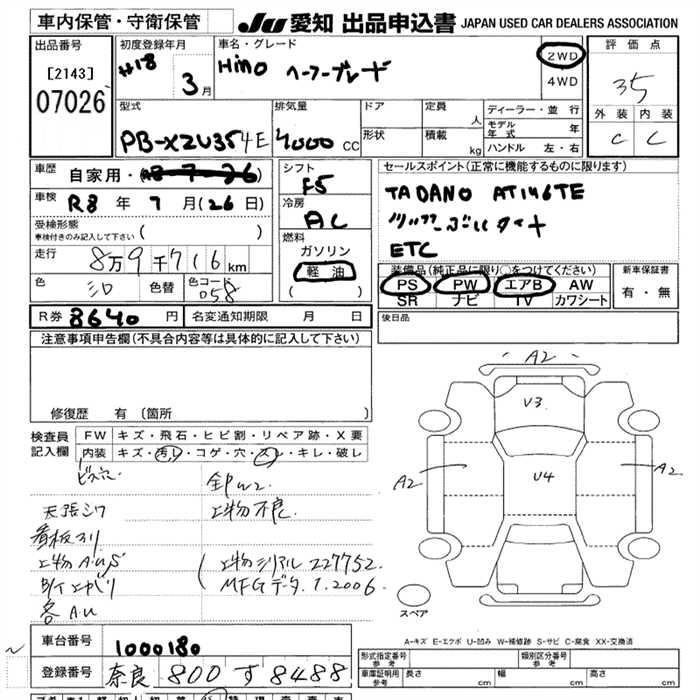 車内保管・守衛保管
JU 愛知 出品申込書 JAPAN USED CAR DEALERS ASSOCIATION
出品番号
[2143]
07026
初度登録年月
H18
3月
車名・グレード
HINO
2WD
4WD
評価点
35
外装 内装
C C
型式
PB-XZU354E
排気量
4000 cc
ドア
形状
定員
人
積載
kg
ディーラー・並行
モデル年式 年
ハンドル 左・右
車歴
自家用・
車検
R8 年 7 月(26日)
受検形態
車検付きのみ記入して下さい ( )
走行
8万9千716km
色
シロ
色替
色コード
058
シフト
F5
冷房
AC
燃料
ガソリン
軽油
( )
セールスポイント(正常に機能するものに限ります)
TADANO AT146TE
ETC
装備品(純正品に限り○をつけてください)
PS PW エアB AW
SR ナビ TV カワシート
新車保証書
有・無
R券 8640 円 名変通知期限 月 日
後日品
注意事項申告欄(不具合内容等は具体的に記入して下さい)
修復歴 有 (箇所 )
検査員記入欄
FW キズ・飛石・ヒビ割・リペア跡・X要
内装 キズ・汚レ・コゲ・穴・スレ・キレ・破レ
ビス穴
天張シワ
看板アリ
上物A.U5
各A.U
上物不良
(上物シリアル 227752
MFGデータ.7.2006
A2
U3
A2
U4
A2
スペア
A-キズ E-エクボ U-凹み W-補修跡 S-サビ C-腐食 XX-交換済
車台番号 1000180
登録番号 奈良 800 す 8488
形式指定番号
参考
類別区分番号
参考
車庫証明用
参考
長さ cm 幅 cm 高さ cm